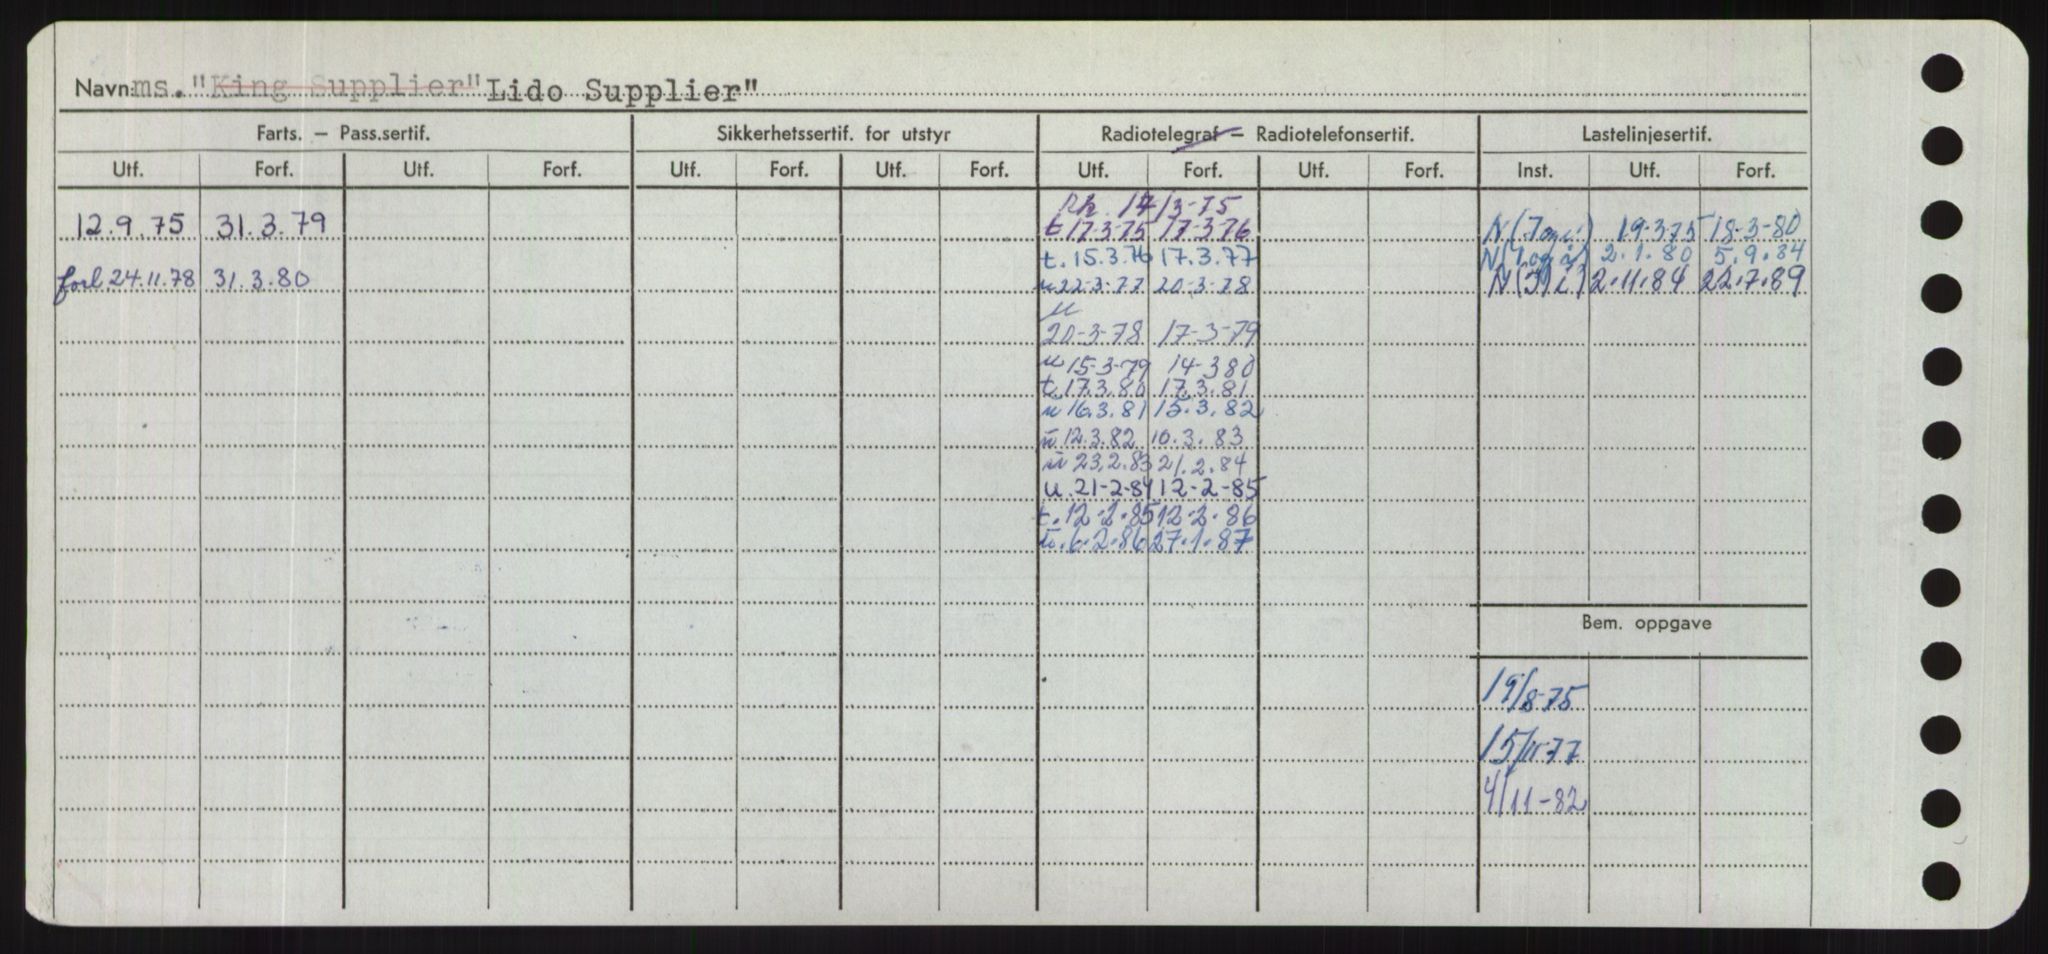 Navn: ms. "King Supplier" Lido Supplier"
Farts. — Pass.sertif. Sikkerhetssertif. for utstyr Radiotelegraf — Radiotelefonsertif. Lastelinjesertif.
Utf. Forf. Utf. Forf. Utf. Forf. Utf. Forf. Utf. Forf. Utf. Forf. Inst. Utf. Forf.
Rh. 17/3-75
12.9.75 31.3.79 t 17.3-75 17-3-76 N ( 19.3.75 18-3-80
t. 15.3.76 17.3.77 N ( 2.1.80 5.9.84
forl. 24.11.78 31.3.80 u 22-3-77 20-3-78 N ( 2.11.84 22.7.89
u
20-3-78 17-3-79
u 15-3-79 14-3 80
t. 17.3.80 17.3.81
u 16.3.81 15.3.82
u 12.3.82 10.3.83
u 23.2.83 21.2.84
u. 21-2-84 12-2-85
t. 12.2.85 12.2.86
u. 6.2.86 27.1.87
Bem. oppgave
19/8-75
15/11-77
4/11-82